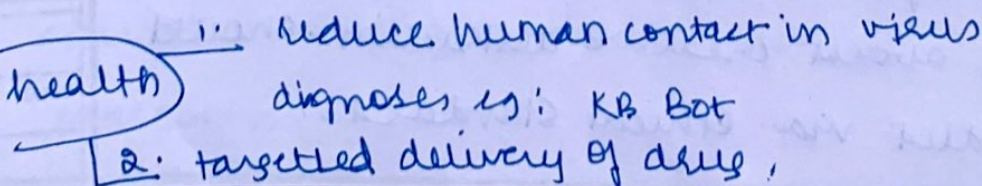 1. reduce human contact in virus
health
dignoses eg: KB Bot
2. targetted delivery of drug,